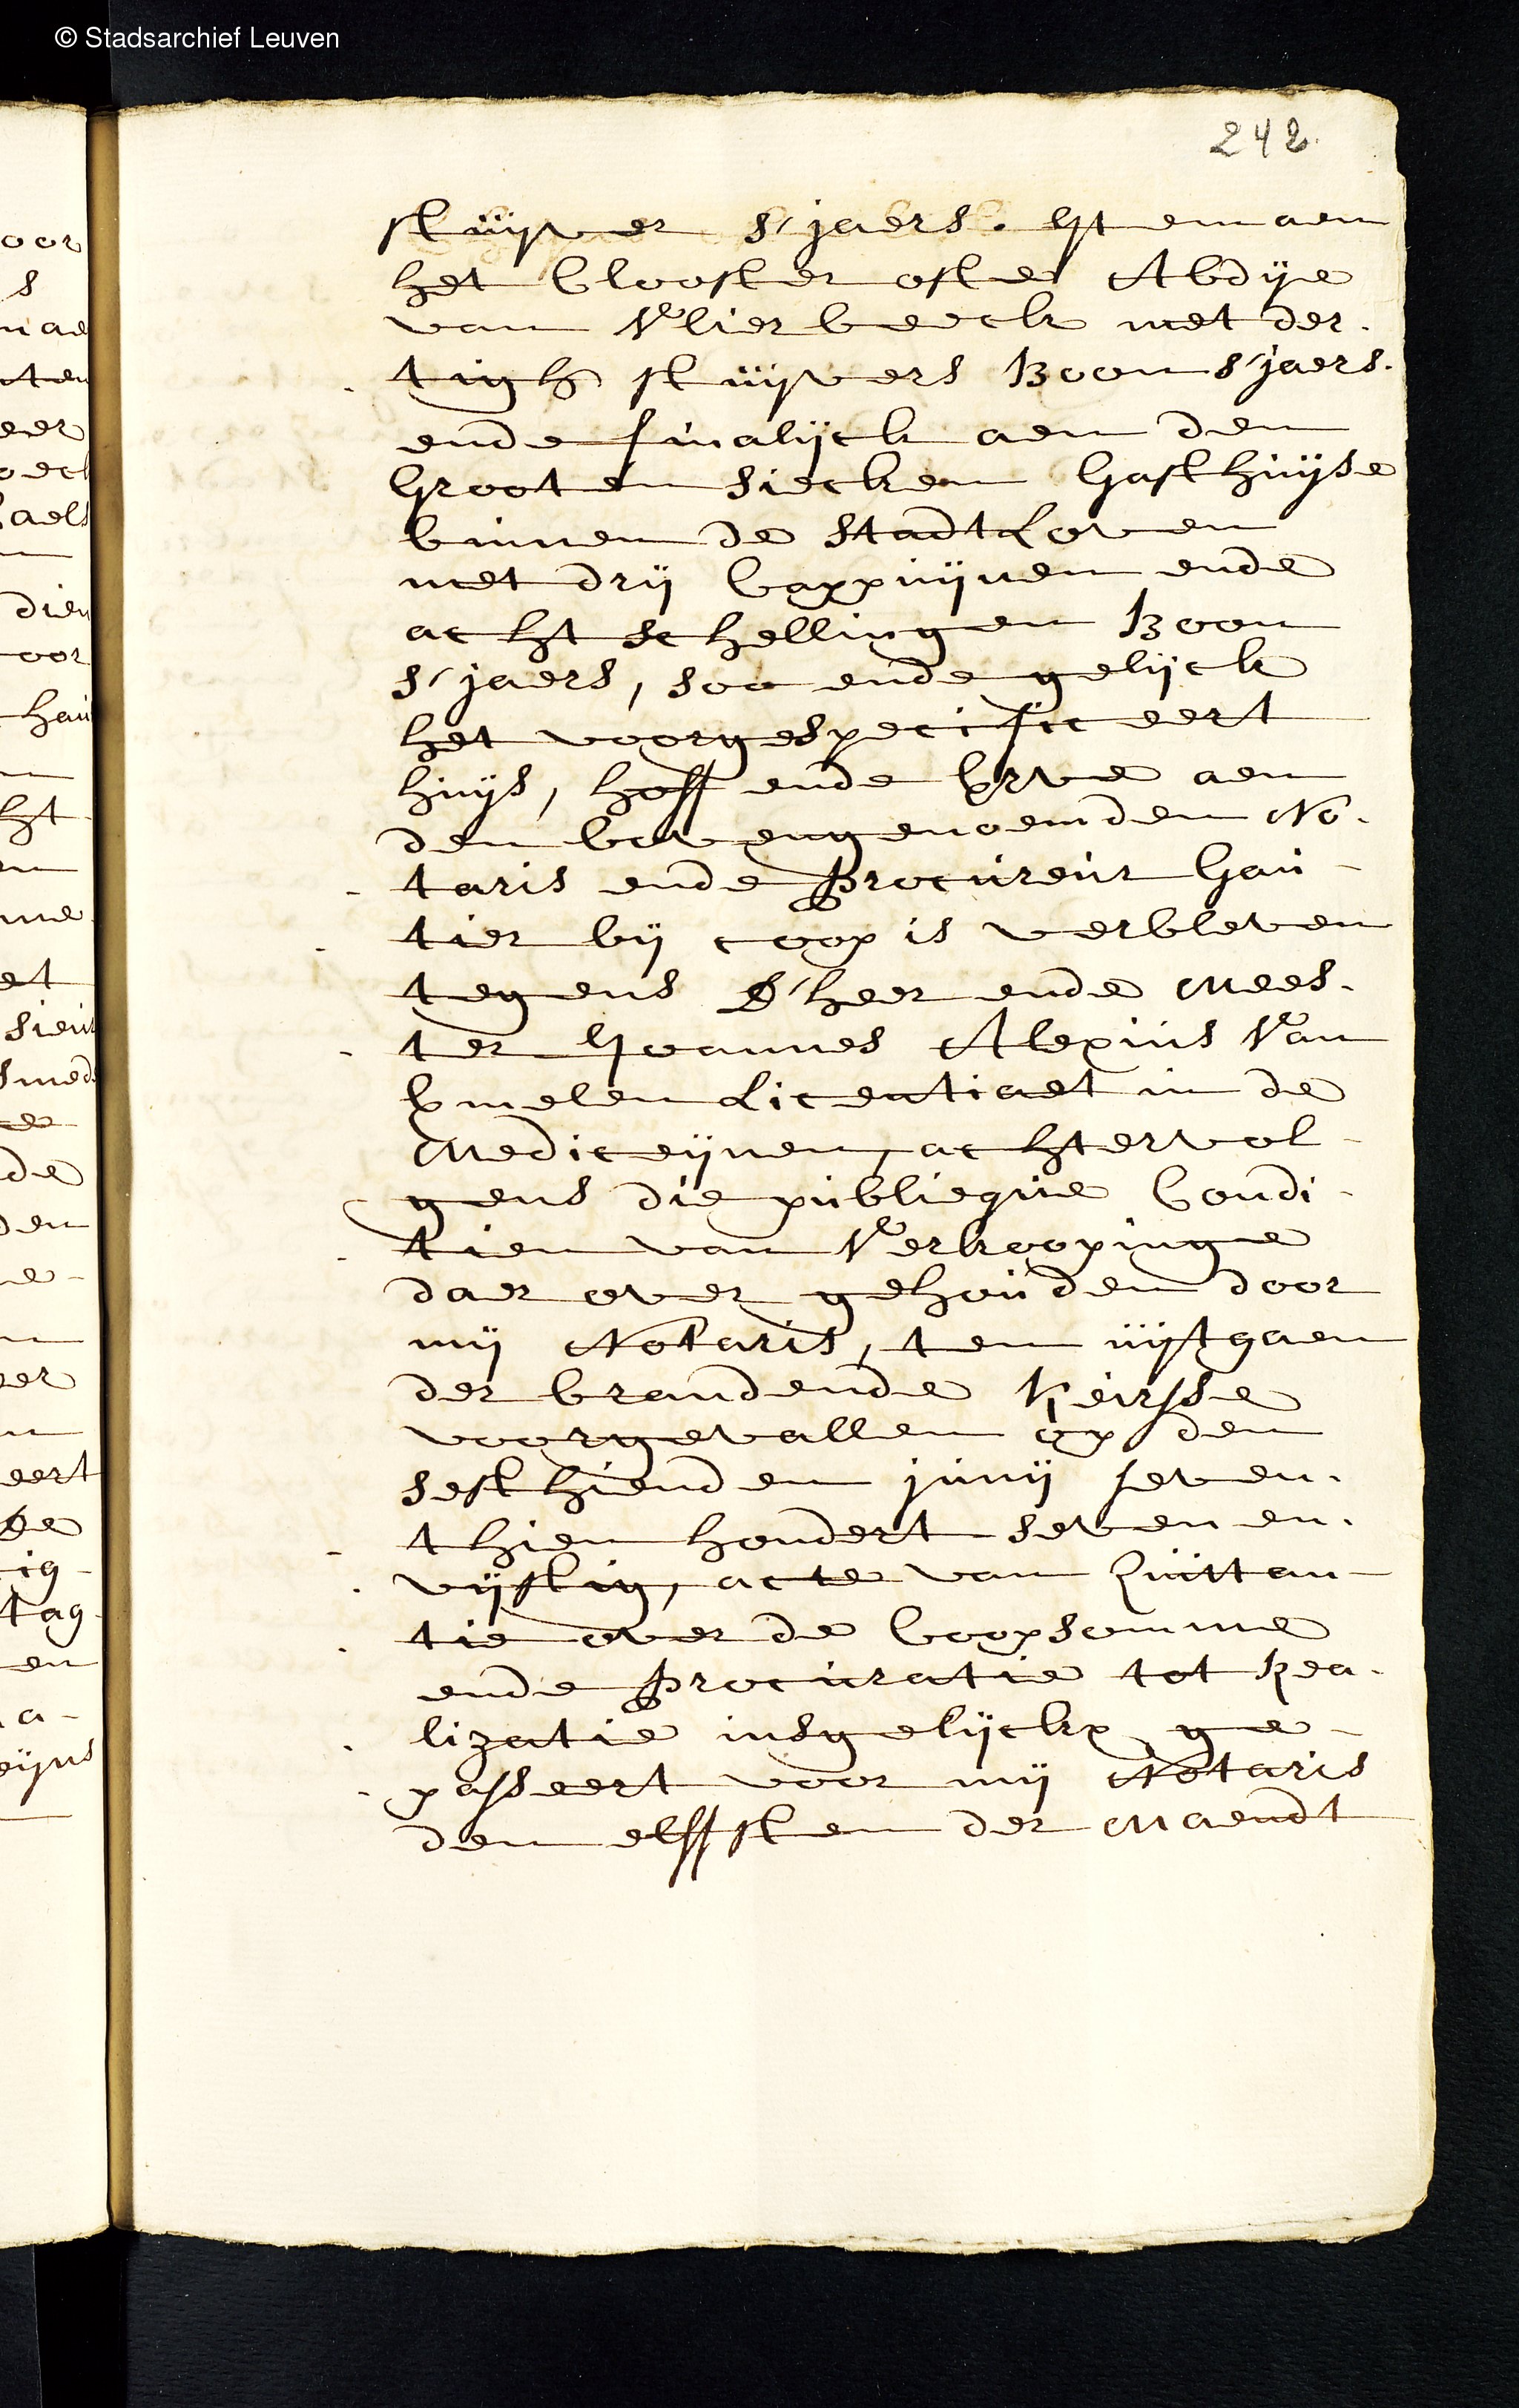 © Stadsarchief Leuven
242.
stuijver s'jaers. Item aen
het Clooster ofte Abdije
van Vlierbeeck met der-
tigh stuijvers Boen s'jaers.
ende finalijck aen den
Grooten siecken Gasthuijse
binnen de stadt Loven
met drij Cappuijnen ende
acht schellingen Boen
s'jaers, soo ende gelijck
het voorgespecificeert
huijs, hoff ende Erve aen
den bovengenoemden No-
taris ende Procureur Gau-
tier bij coop is verbleven
tegens D'heer ende Mees-
ter Joannes Alexius Van
Emelen Licentiaet in de
Mediceijnen, achtervol-
gens die publieque Condi-
tien van Verkoopinge
daer over gehouden door
mij Notaris, ten uijtgaen
der brandende Keirsse
voorgevallen op den
sesthienden junij seven-
thien hondert seven en-
vijftig, acte van Quittan-
tie over de Coopsomme
ende Procuratie tot Rea-
lizatie insgelijckx ge-
passeert voor mij Notaris
den elffsten der Maendt